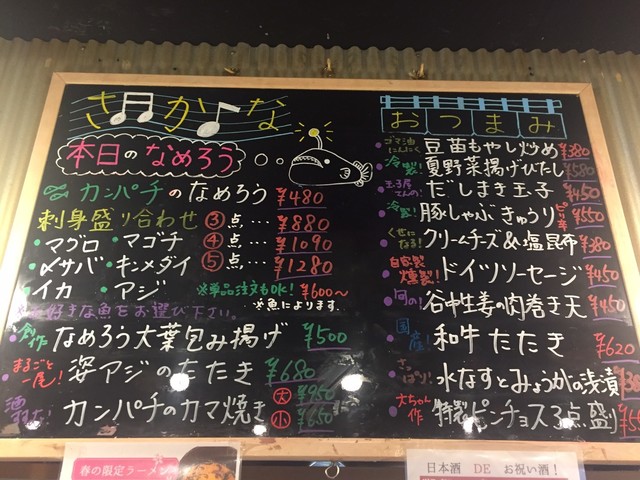 さかな
本日のなめろう
カンパチのなめろう ¥480
刺身盛り合わせ ③点… ¥880
・マグロ ・マゴチ ④点… ¥1090
・〆サバ・キンメダイ ⑤点… ¥1280
・イカ ・アジ ※単品注文もOK! ¥600〜
※お好きな魚をお選び下さい。 ※魚によります。
・創作 なめろう大葉包み揚げ ¥500
・まるごと一尾! 姿アジのたたき ¥680
・酒すすむ! カンパチのカマ焼き 大 ¥950
小 ¥650
おつまみ
・ゴマ油にんにく 豆苗もやし炒め ¥380
・冷製! 夏野菜揚げびたし ¥580
・玉子屋さんの! だしまき玉子 ¥450
・冷製! 豚しゃぶきゅうりピリ辛 ¥550
・くせになる! クリームチーズ&塩昆布 ¥380
・自家製燻製! ドイツソーセージ ¥450
・旬の! 谷中生姜の肉巻き天 ¥450
・国産! 和牛たたき ¥620
・さっぱり! 水なすとみょうがの浅漬
・大ちゃん作 特製ピンチョス3点盛り
春の限定ラーメン
日本酒 DE お祝い酒!